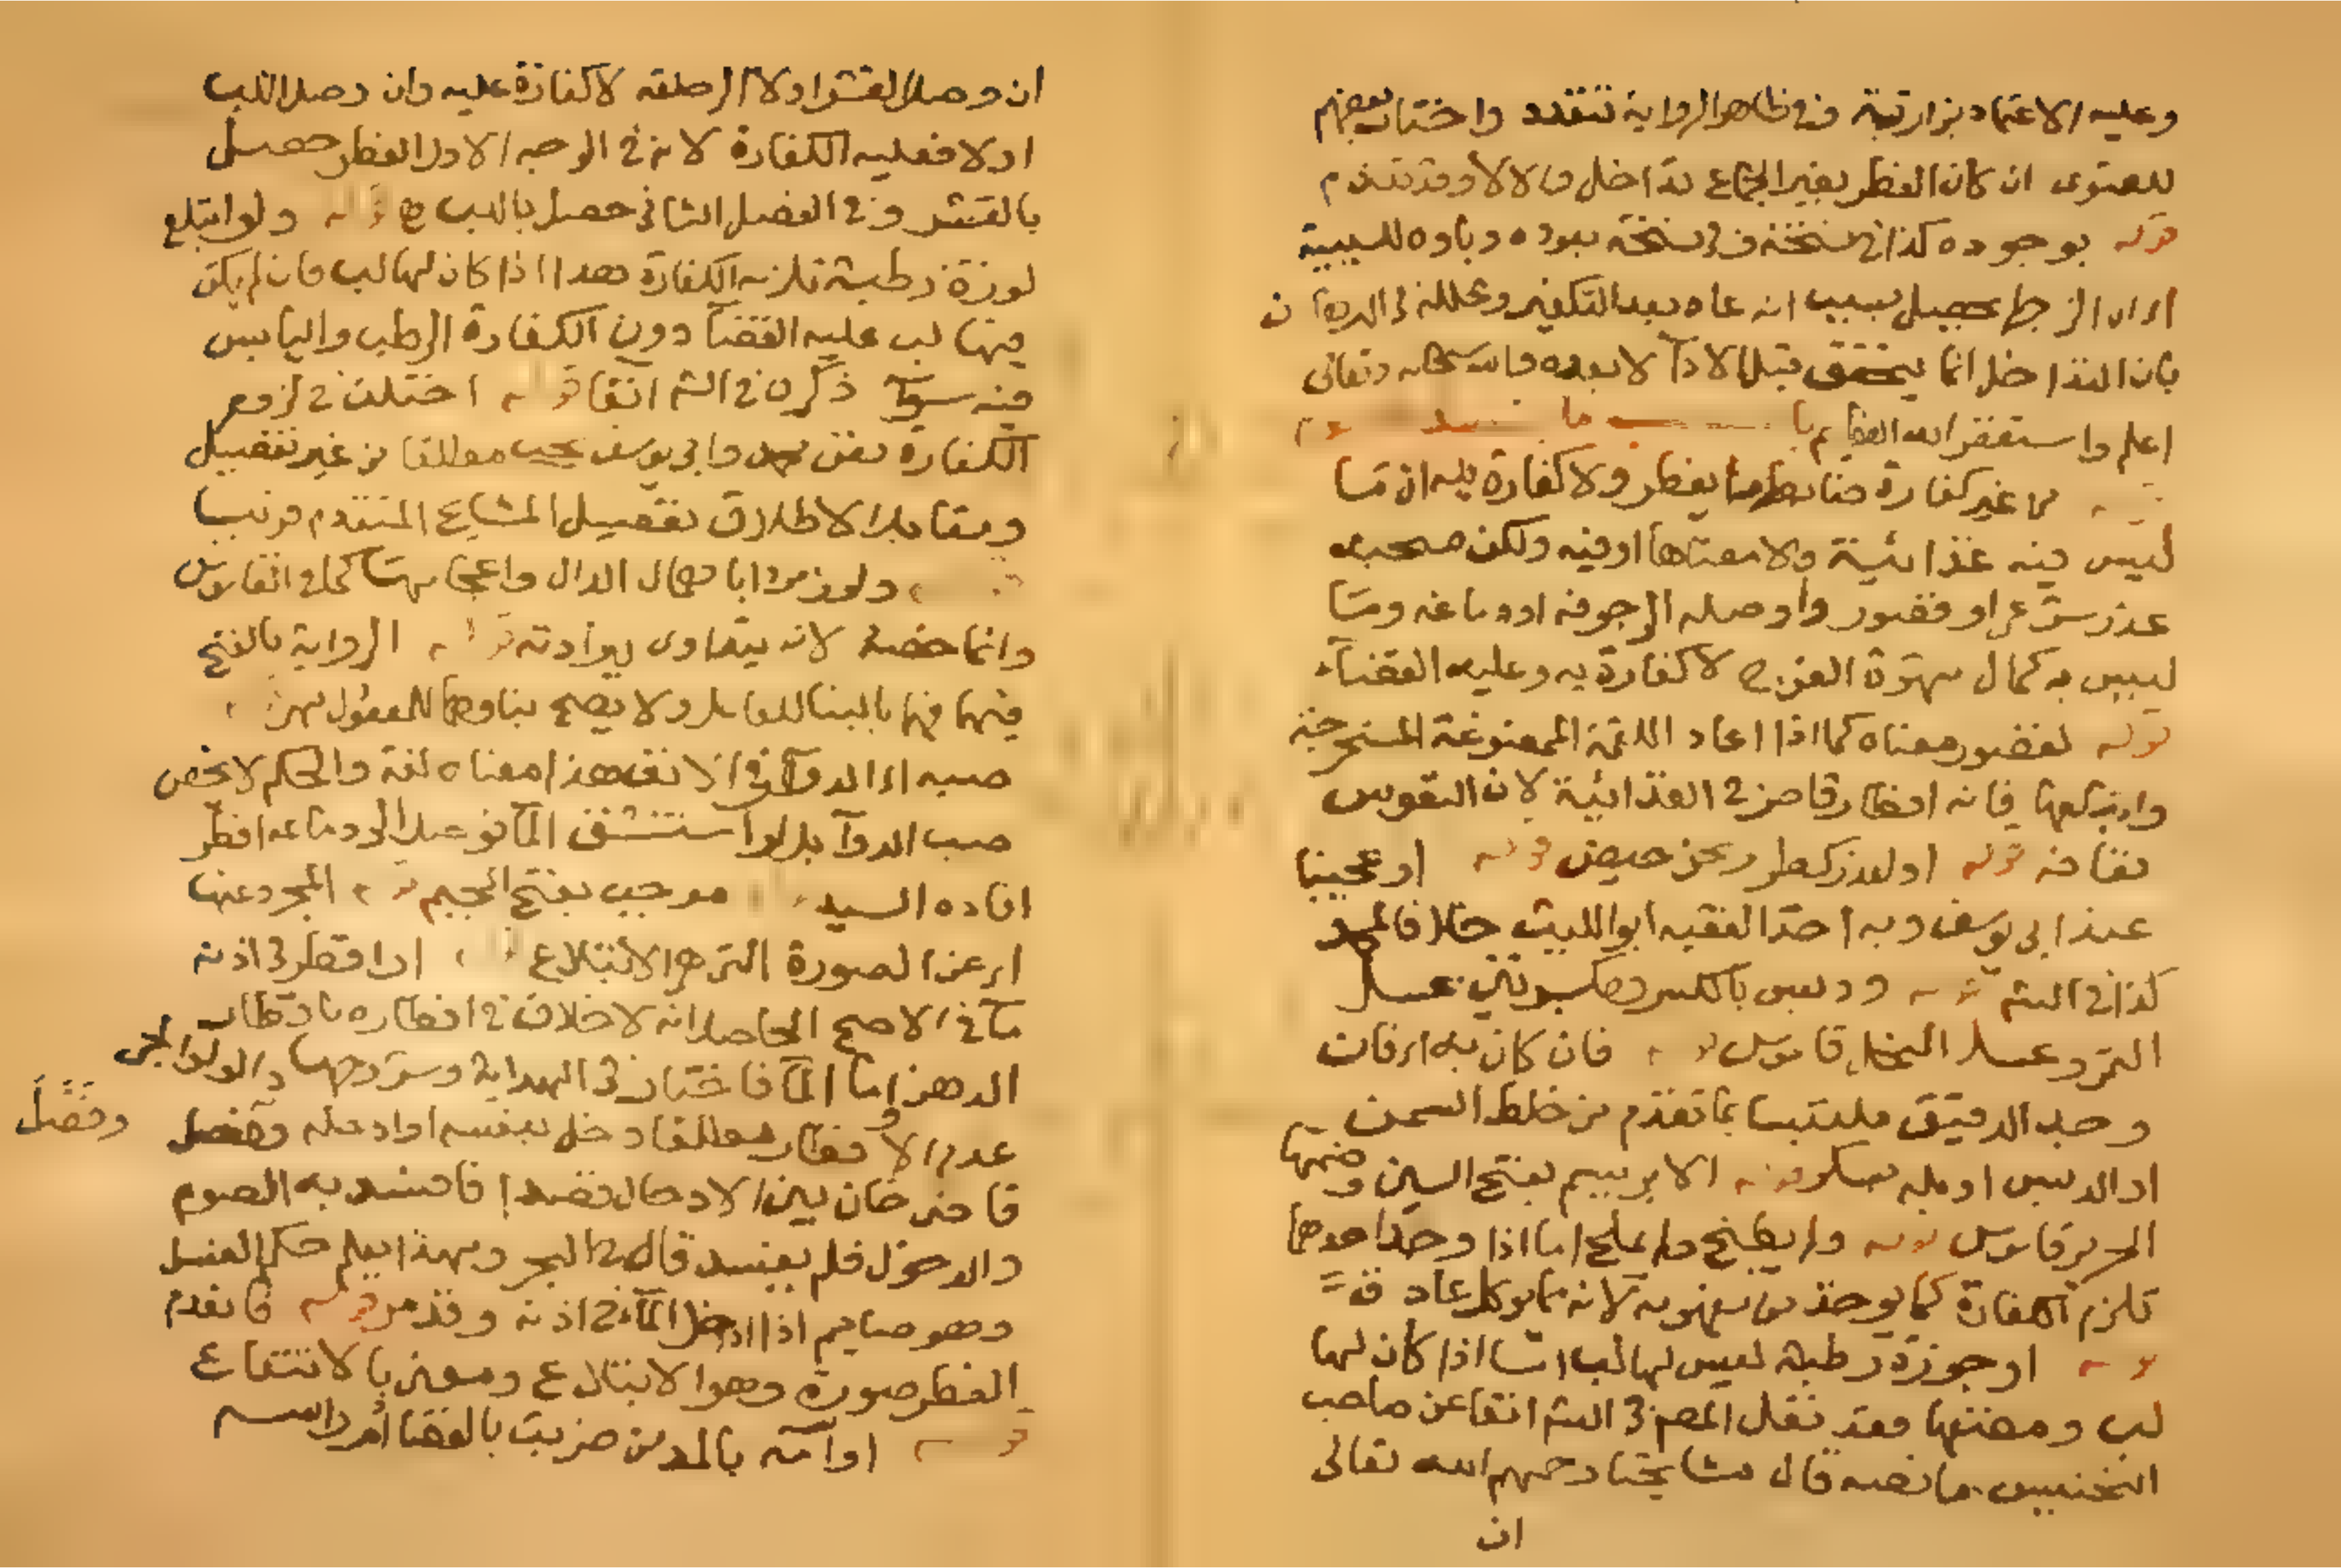 وعليه الاعتماد بزازية وفي ظاهر الرواية تتعدد واختار بعضهم
للفتوى ان كان الفطر بغير الجماع تداخل والا لا وقد تقدم
قوله بوجوده كذا في نسخة وفي نسخة بعوده وباوه للسببية
اي ان الزجر لم يحصل بسبب انه عاد بعد التكفير وعلله في
بان التداخل انما يتحقق قبل الادآ لا بعده والله سبحانه وتعالى
اعلم واستغفر الله العظيم
من غير كفارة ضابطه ما يفطر ولا كفارة فيه ان ما
ليس فيه غذائية ولا معناها او فيه ولكن صحبه
عذر شرعي او قصور واوصله الى جوفه او دماغه وما
ليس به كمال شهوة الفرج لا كفارة به وعليه القضآء
قوله لقصور معناه كما اذا اعاد اللقمة الممضوغة المستخرجة
وابتلعها فانه افطار قاصر في الغذائية لان النفوس
تعافه قوله او لعذر كمطر ومرض حيض قوله او عجينا
عند ابي يوسف وبه اخذ الفقيه ابو الليث خلافا لمحمد
كذا في الشر قوله ودبس بالكسر وبكسرتين عسل
التمر وعسل النحل قاموس قوله فان كان به اي فان
وجد الدقيق ملتبسا بما تقدم من خلط السمن
او الدبس او بله بسكر قوله الابريسم بفتح السين وضمها
الحرير قاموس قوله ولم يطبخ ولم يملح اما اذا وجد احدهما
تلزم الكفارة كما يوخذ من مفهومه لانه مما يوكل عادة
قوله او جوزة رطبة ليس لها لب اما اذا كان لها
لب ومضغها فقد نقل المصر في الشر انفا عن صاحب
التجنيس ما نصه قال مشايخنا رحمهم الله تعالى
ان
ان وصل القشر اولا الى حلقه لا كفارة عليه وان وصل اللب
اولا فعليه الكفارة لانه في الوجه الاول الفطر حصل
بالقشر وفي الفصل الثاني حصل باللب قوله ولو ابتلع
لوزة رطبة تلزمه الكفارة هذا اذا كان لها لب فان لم يكن
فيها لب عليه القضآ دون الكفارة الرطب واليابس
فيه سوآ ذكره في الشر انفا قوله اختلف في لزوم
الكفارة فعن محمد وابي يوسف يجب مطلقا من غير تفصيل
ومقابل الاطلاق تفصيل المشايخ المتقدم قريبا
ولوزمردا باهمال الدال واعجامها كما في القاموس
وانما خصه لانه يتداوى ببرادته قوله الرواية بالفتح
فيهما فهما بالبنا للفاعل ولا يصح بناوهما للمفعول نهر
صبه اي الدوآ في الانف هذا معناه لغة والحكم لا يخص
صب الدوآ بل لو استنشق المآ فوصل الى دماغه افطر
افاده السيد موجب بفتح الجيم قوله المجرد عنها
اي عن الصورة التي هي الابتلاع او اقطر في اذنه
مآ في الاصح الحاصل انه لا خلاف في افطاره باقطار
الدهن واما المآ فاختار في الهداية وشروحها والولوالجي
عدم الافطار مطلقا دخل بنفسه او ادخله وفصل
وفَصَّلَ
قاضي خان بين الادخال قصدا فافسد به الصوم
والدخول فلم يفسد قال صا البحر وبهذا يعلم حكم الغسل
وهو صايم اذا ادخل المآ في اذنه وقد مر قوله فانعدم
الفطر صورة وهو الابتلاع ومعنى بالانتفاع
قوله او آمّة بالمد من ضربت بالعصا ام راسه